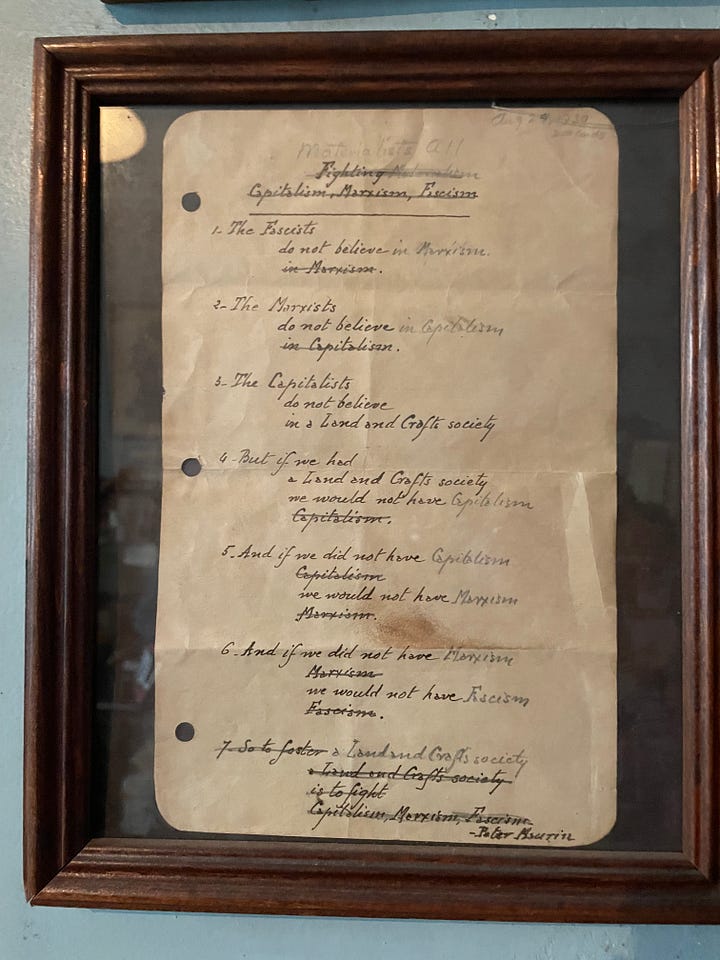 Aug 2
Materialists All
Fighting Materialism
Capitalism, Marxism, Fascism
1- The Fascists
do not believe in Marxism.
in Marxism.
2- The Marxists
do not believe in Capitalism
in Capitalism.
3- The Capitalists
do not believe
in a Land and Crafts society
4- But if we had
a Land and Crafts society
we would not have Capitalism
Capitalism.
5- And if we did not have Capitalism
Capitalism
we would not have Marxism
Marxism.
6- And if we did not have Marxism
Marxism
we would not have Fascism
Fascism.
7- So to foster a Land and Crafts society
a Land and Crafts society
is to fight
Capitalism, Marxism, Fascism
-Peter Maurin